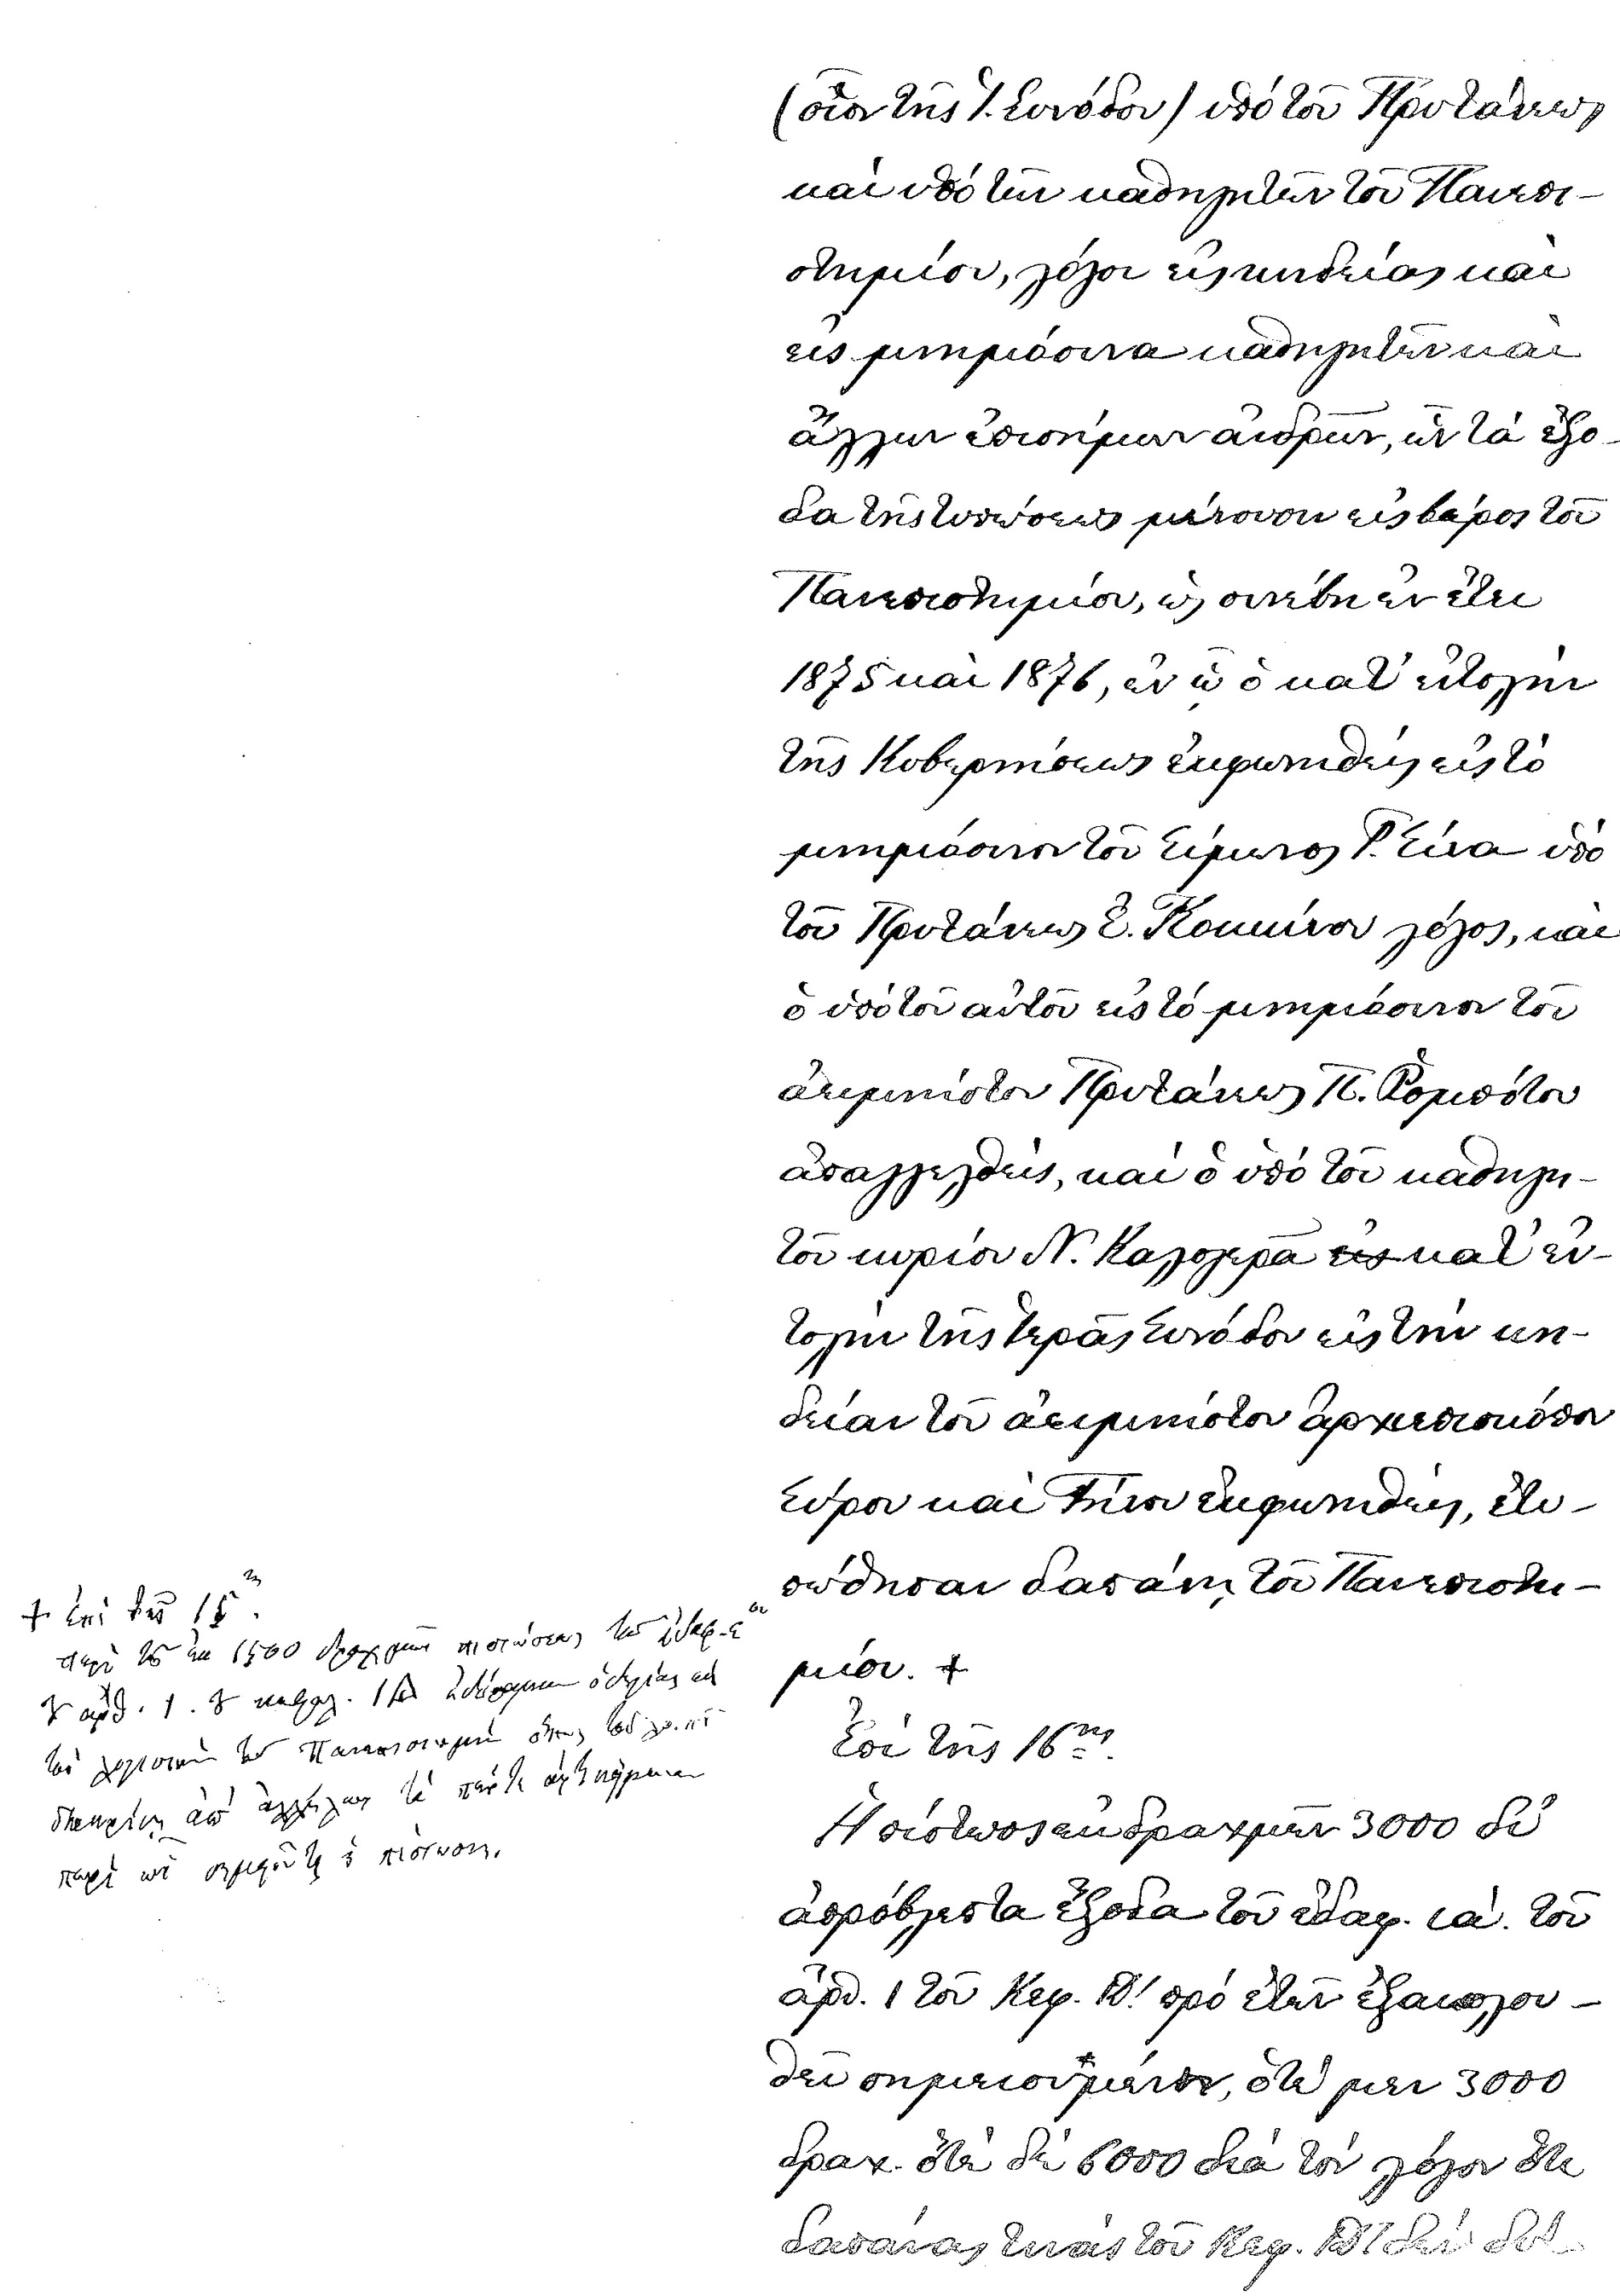 (οἷον τῆς Ἱ. Συνόδου) ὑπὸ τοῦ Πρυτάνεως
καὶ ὑπὸ τῶν καθηγητῶν τοῦ Πανεπι-
στημίου, λόγοι εἰς κηδείας καὶ
εἰς μνημόσυνα καθηγητῶν καὶ
ἄλλων ἐπισήμων ἀνδρῶν, ὧν τὰ ἔξο-
δα τῆς τυπώσεως μένουσι εἰς βάρος τοῦ
Πανεπιστημίου, ὡς συνέβη ἐν ἔτει
1875 καὶ 1876, ἐν ᾧ ὁ κατ' ἐντολὴν
τῆς Κυβερνήσεως ἐκφωνηθεὶς εἰς τὸ
μνημόσυνον τοῦ Σίμωνος Γ. Σίνα ὑπὸ
τοῦ Πρυτάνεως Ἐ. Κοκκίνου λόγος, καὶ
ὁ ὑπὸ τοῦ αὐτοῦ εἰς τὸ μνημόσυνον τοῦ
ἀειμνήστου Πρυτάνεως Π. Ῥομπότου
ἀπαγγελθεὶς, καὶ ὁ ὑπὸ τοῦ καθηγη-
τοῦ κυρίου Ν. Καλογερᾶ κατ' ἐν-
τολὴν τῆς Ἱερᾶς Συνόδου εἰς τὴν κη-
δείαν τοῦ ἀειμνήστου ἀρχιεπισκόπου
Σύρου καὶ Τήνου ἐκφωνηθεὶς, ἐτυ-
πώθησαν δαπάνῃ τοῦ Πανεπιστη-
μίου. +
Ἐπὶ τῆς 16ης.
Ἡ πίστωσις ἐκ δραχμῶν 3000 δι'
ἀπρόβλεπτα ἔξοδα τοῦ ἐδαφ. ιά. τοῦ
ἄρθ. 1 τοῦ Κεφ. ΙΘ' πρὸ ἐτῶν ἐξακολου-
θεῖ σημειουμένη, ὁτὲ μὲν 3000
δραχ. ὁτὲ δὲ 6000 διὰ τὸν λόγον ὅτι
δαπάνας τινὰς τοῦ Κεφ. ΙΘ'
+ Ἐπὶ τῆς 15ης.
περὶ τῆς ἐκ 1500 δραχμῶν πιστώσεως τοῦ ἐδαφ.
ἀρθ. 1.
τοῦ Πανεπιστημίου ὅπως
διακρίνῃ ἀπ' ἀλλήλων τὰ πέντε